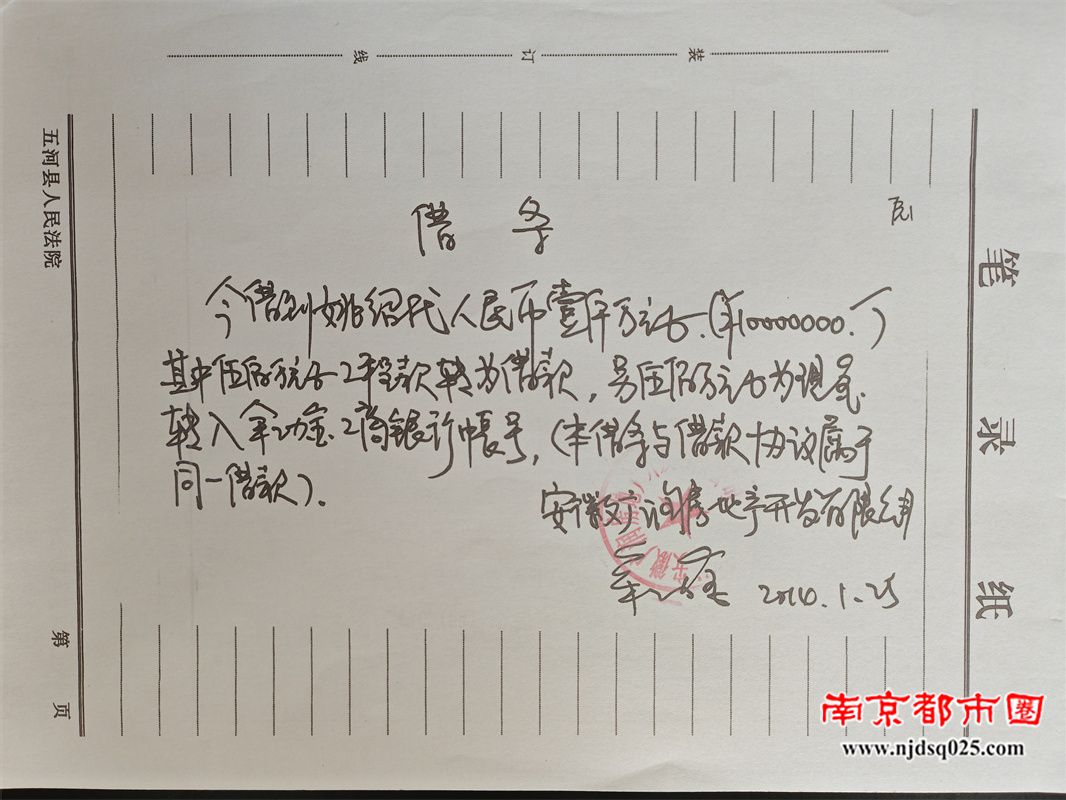 装 订 线
五河县人民法院
笔录纸
第 页
借条
今借到姚绍代人民币壹仟万元. (¥10000000.)
其中伍佰万元工程款转为借款，另伍佰万元为现金
转入 工商银行帐号，(本借条与借款协议属于
同一借款)。
安徽 房地产开发有限公司
2014.1.25
南京都市圈
www.njdsq025.com